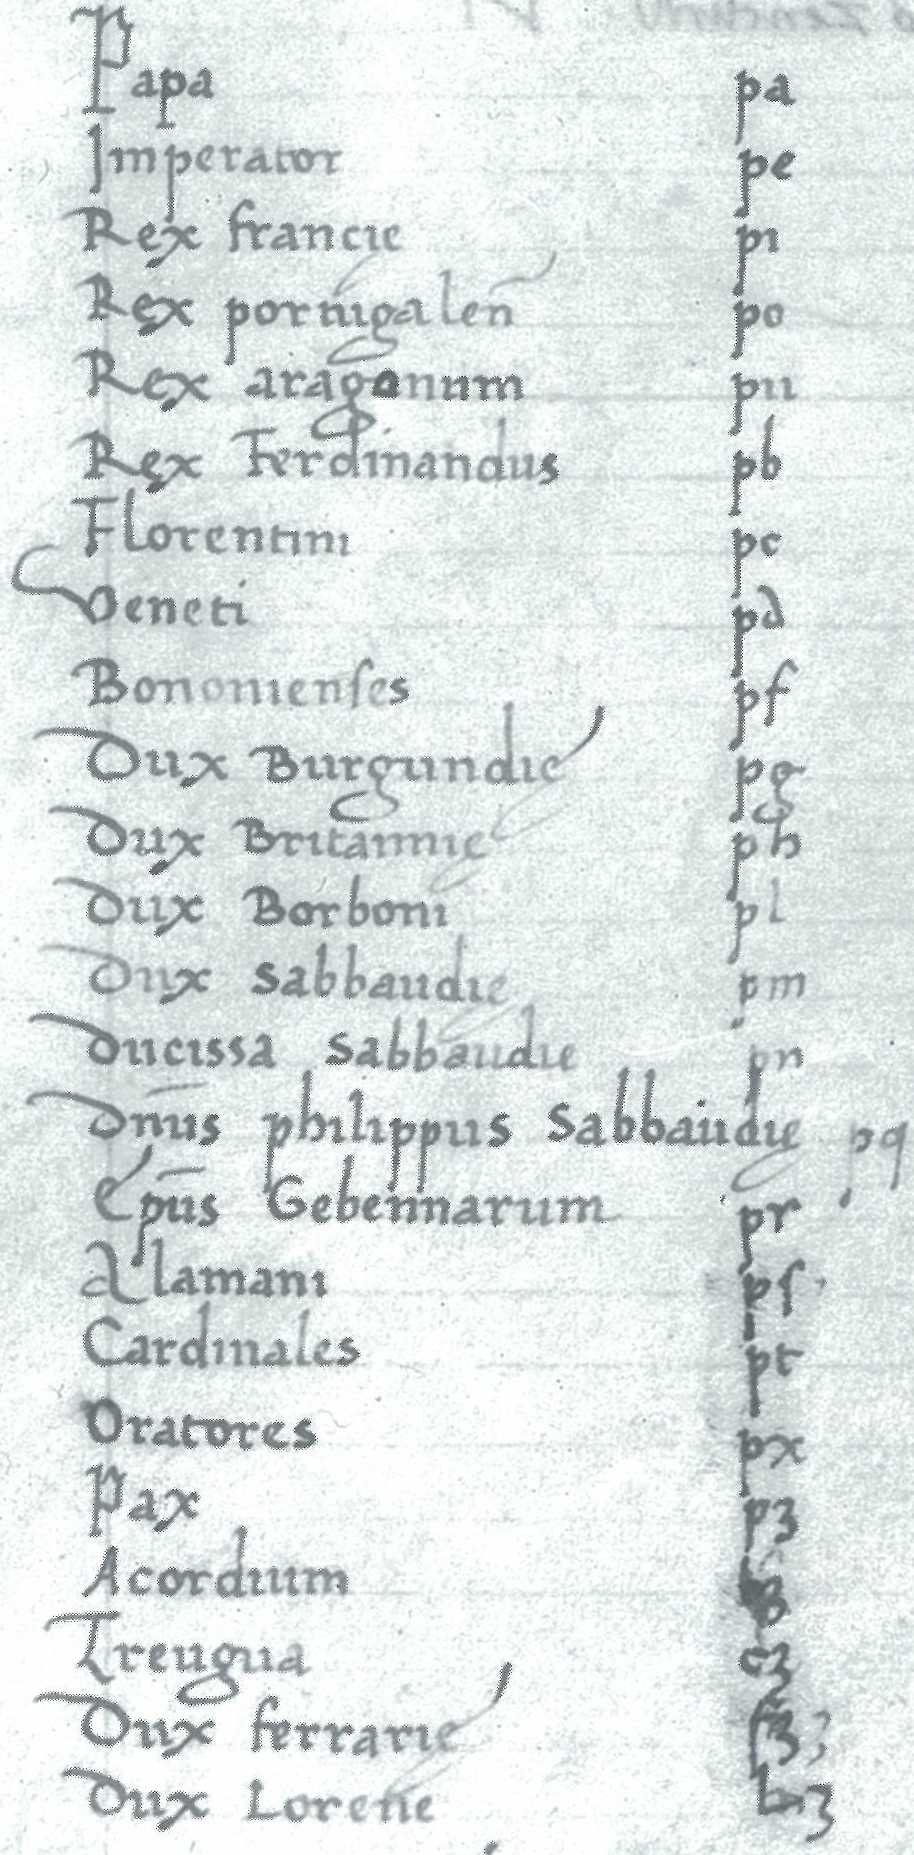 Papa pa
Imperator pe
Rex francie pi
Rex portugalen po
Rex aragonum pu
Rex Ferdinandus pb
Florentini pc
Veneti pd
Bononienses pf
Dux Burgundie pg
Dux Britannie ph
Dux Borboni pl
Dux Sabbaudie pm
Ducissa Sabbaudie pn
Dn̄us philippus Sabbaudie pq
Ep̄us Gebennarum pr
Alamani ps
Cardinales pt
Oratores px
Pax pz
Acordium
Treugua cz
Dux ferrarie fz
Dux Lorene